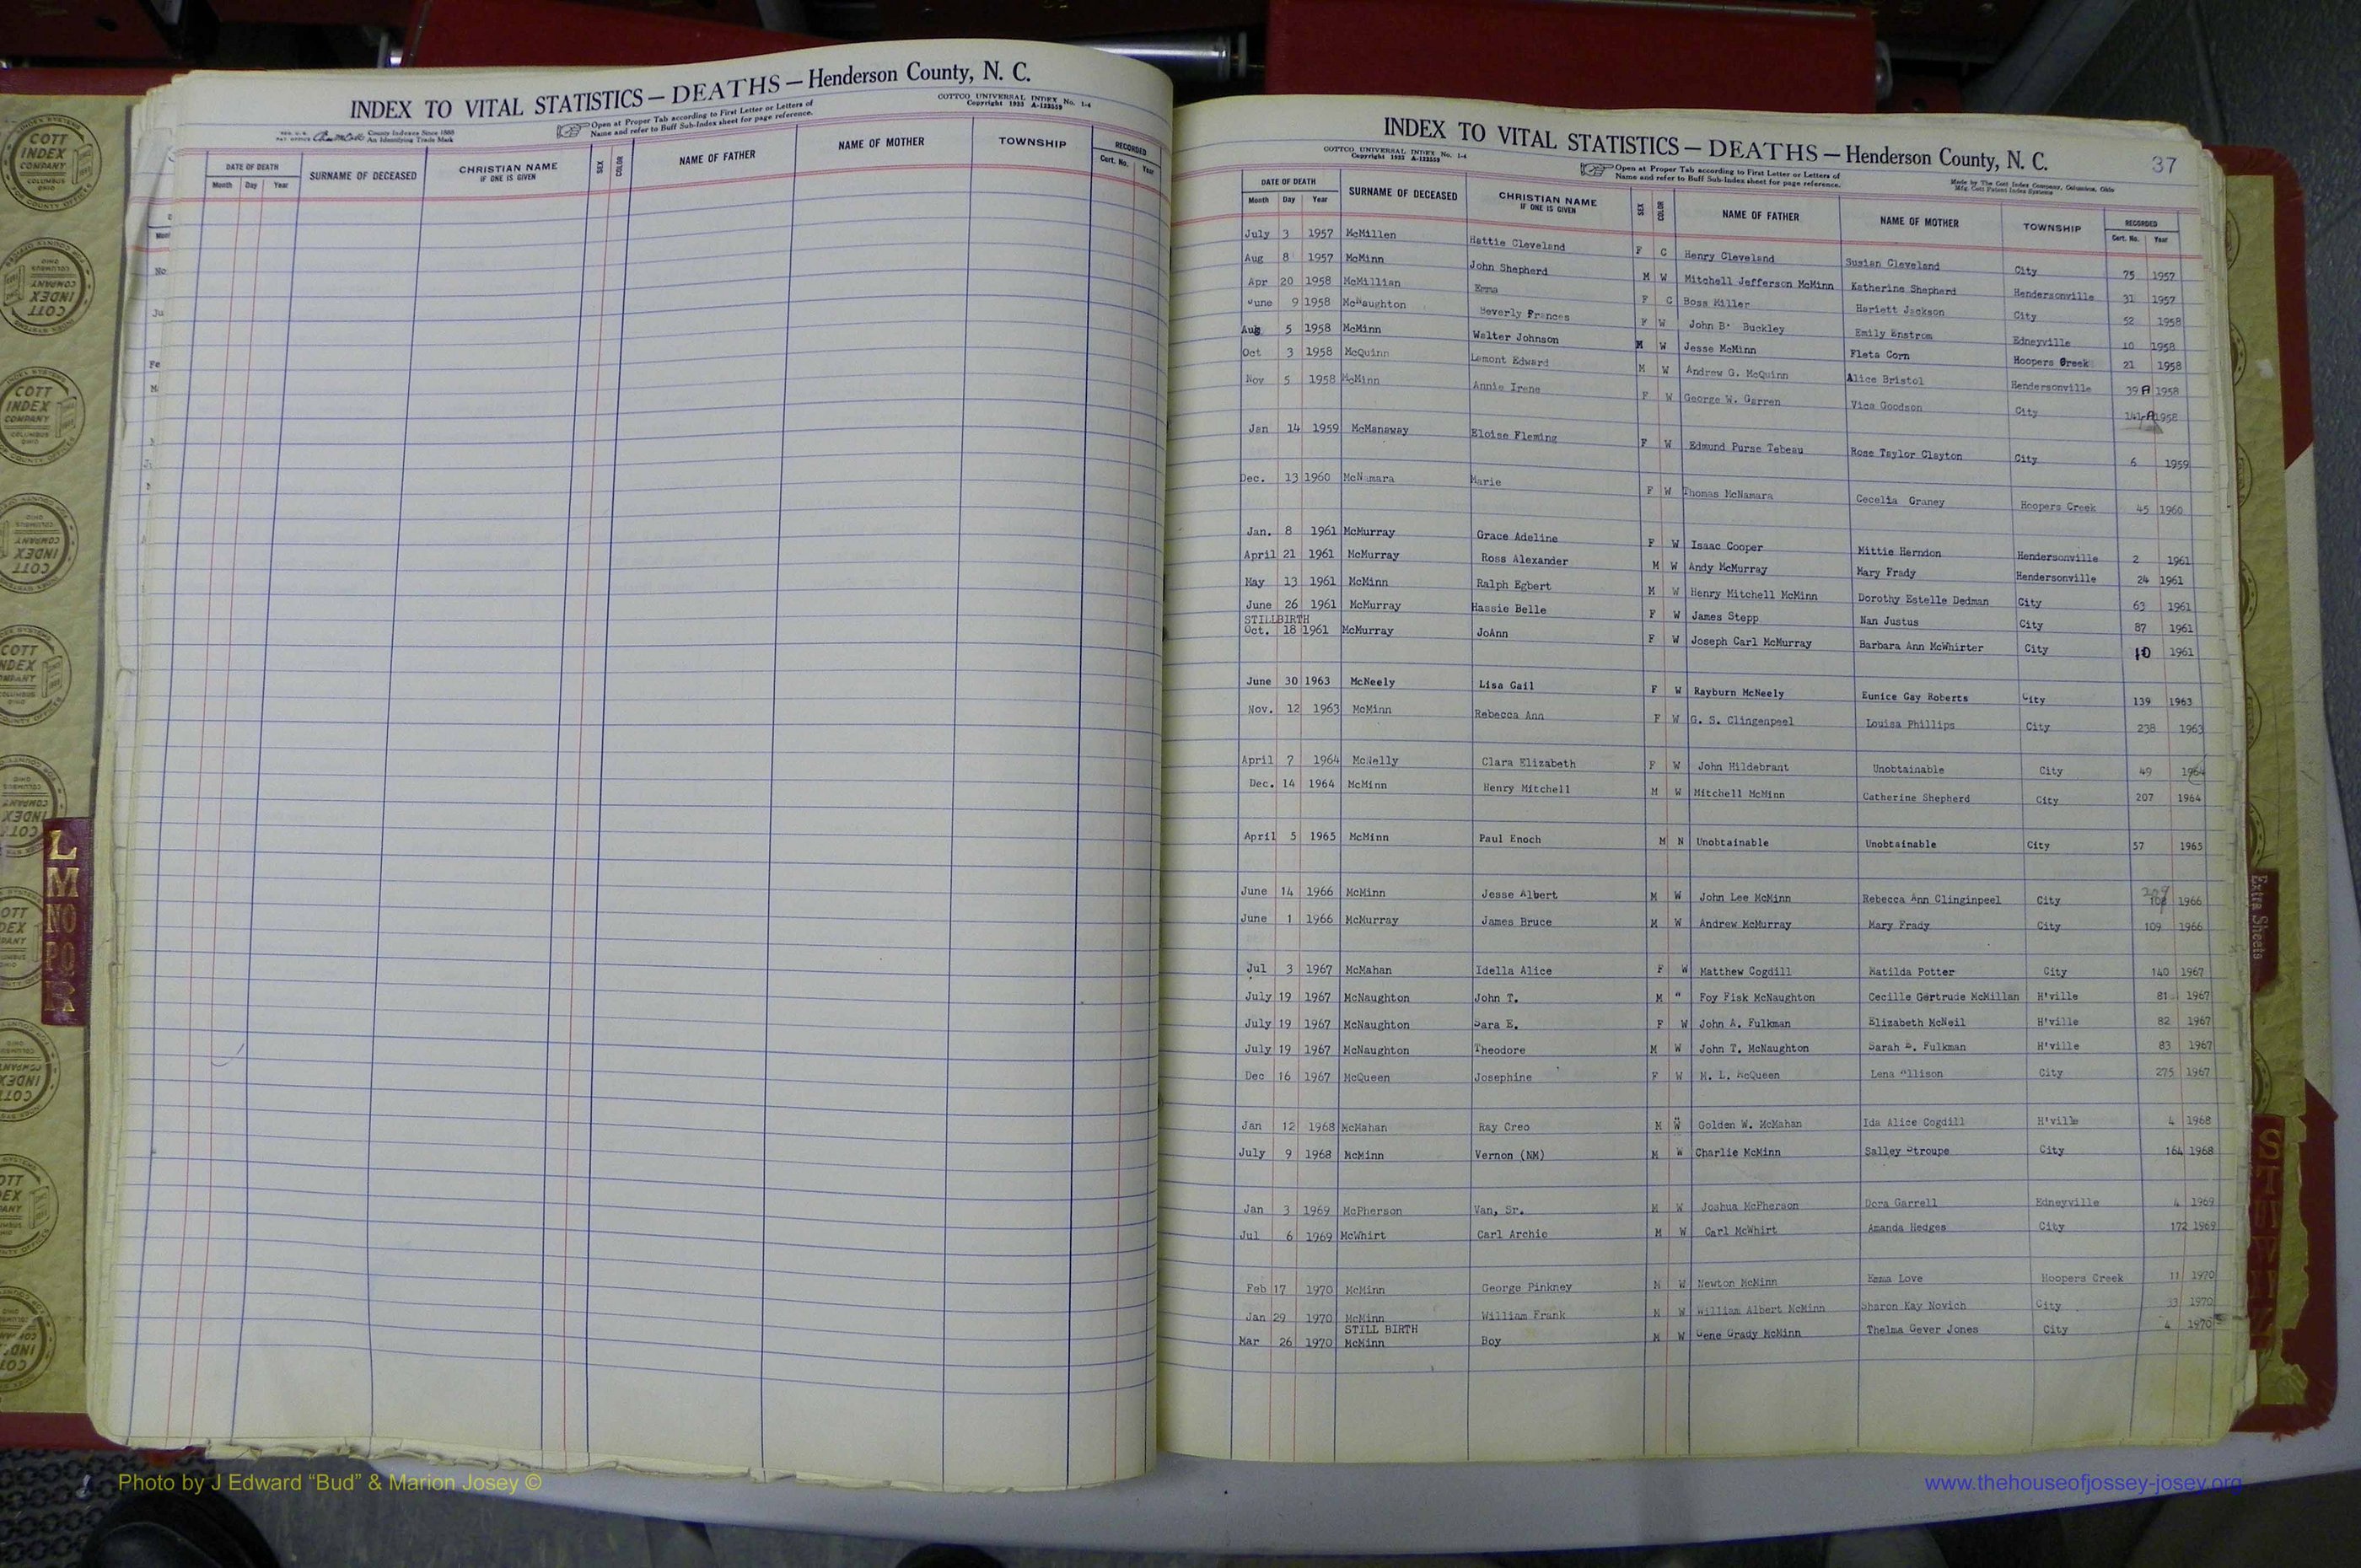 INDEX TO VITAL STATISTICS — DEATHS — Henderson County, N. C.
COTTCO UNIVERSAL INDEX No. 1-4
Copyright 1933 A-123559
County Indexes Since 1888
An Identifying Trade Mark
Open at Proper Tab according to First Letter or Letters of
Name and refer to Buff Sub-Index sheet for page reference.
DATE OF DEATH SURNAME OF DECEASED CHRISTIAN NAME IF ONE IS GIVEN SEX COLOR NAME OF FATHER NAME OF MOTHER TOWNSHIP RECORDED
Month Day Year Cert. No. Year
INDEX TO VITAL STATISTICS — DEATHS — Henderson County, N. C.
37
COTTCO UNIVERSAL INDEX No. 1-4
Copyright 1933 A-123559
Open at Proper Tab according to First Letter or Letters of
Name and refer to Buff Sub-Index sheet for page reference.
Made by The Cott Index Company, Columbus, Ohio
DATE OF DEATH SURNAME OF DECEASED CHRISTIAN NAME IF ONE IS GIVEN SEX COLOR NAME OF FATHER NAME OF MOTHER TOWNSHIP RECORDED
Month Day Year Cert. No. Year
July 3 1957 McMillen Hattie Cleveland F C Henry Cleveland Susian Cleveland City 75 1957
Aug 8 1957 McMinn John Shepherd M W Mitchell Jefferson McMinn Katherine Shepherd Hendersonville 31 1957
Apr 20 1958 McMillian Emma F C Boss Miller Hariett Jackson City 52 1958
June 9 1958 McNaughton Beverly Frances F W John B. Buckley Emily Enstrom Edneyville 10 1958
Aug 5 1958 McMinn Walter Johnson M W Jesse McMinn Fleta Corn Hoopers Creek 21 1958
Oct 3 1958 McQuinn Lamont Edward M W Andrew G. McQuinn Alice Bristol Hendersonville 39 A 1958
Nov 5 1958 McMinn Annie Irene F W George W. Garren Vica Goodson City 141-A 1958
Jan 14 1959 McManaway Eloise Fleming F W Edmund Purse Tebeau Rose Taylor Clayton City 6 1959
Dec. 13 1960 McNamara Marie F W Thomas McNamara Cecelia Graney Hoopers Creek 45 1960
Jan. 8 1961 McMurray Grace Adeline F W Isaac Cooper Mittie Herndon Hendersonville 2 1961
April 21 1961 McMurray Ross Alexander M W Andy McMurray Mary Frady Hendersonville 24 1961
May 13 1961 McMinn Ralph Egbert M W Henry Mitchell McMinn Dorothy Estelle Dedman City 63 1961
June 26 1961 McMurray Hassie Belle F W James Stepp Nan Justus City 87 1961
STILLBIRTH
Oct. 18 1961 McMurray JoAnn F W Joseph Carl McMurray Barbara Ann McWhirter City 10 1961
June 30 1963 McNeely Lisa Gail F W Rayburn McNeely Eunice Gay Roberts City 139 1963
Nov. 12 1963 McMinn Rebecca Ann F W G. S. Clingenpeel Louisa Phillips City 238 1963
April 7 1964 McNelly Clara Elizabeth F W John Hildebrant Unobtainable City 49 1964
Dec. 14 1964 McMinn Henry Mitchell M W Mitchell McMinn Catherine Shepherd City 207 1964
April 5 1965 McMinn Paul Enoch M N Unobtainable Unobtainable City 57 1965
June 14 1966 McMinn Jesse Albert M W John Lee McMinn Rebecca Ann Clinginpeel City 1966
June 1 1966 McMurray James Bruce M W Andrew McMurray Mary Frady City 109 1966
Jul 3 1967 McMahan Idella Alice F W Matthew Cogdill Matilda Potter City 140 1967
July 19 1967 McNaughton John T. M " Foy Fisk McNaughton Cecille Gertrude McMillan H'ville 81 1967
July 19 1967 McNaughton Sara E. F W John A. Fulkman Elizabeth McNeil H'ville 82 1967
July 19 1967 McNaughton Theodore M W John T. McNaughton Sarah E. Fulkman H'ville 83 1967
Dec 16 1967 McQueen Josephine F W M. L. McQueen Lena Allison City 275 1967
Jan 12 1968 McMahan Ray Creo M W Golden W. McMahan Ida Alice Cogdill H'ville 4 1968
July 9 1968 McMinn Vernon (NM) M W Charlie McMinn Salley Stroupe City 164 1968
Jan 3 1969 McPherson Van, Sr. M W Joshua McPherson Dora Garrell Edneyville 4 1969
Jul 6 1969 McWhirt Carl Archie M W Carl McWhirt Amanda Hedges City 172 1969
Feb 17 1970 McMinn George Pinkney M W Newton McMinn Emma Love Hoopers Creek 11 1970
Jan 29 1970 McMinn William Frank M W William Albert McMinn Sharon Kay Novich City 33 1970
STILL BIRTH
Mar 26 1970 McMinn Boy M W Gene Grady McMinn Thelma Gever Jones City 4 1970
L
M
NO
PQ
R
Extra Sheets
COTT INDEX COMPANY COLUMBUS OHIO
Photo by J Edward “Bud” & Marion Josey ©
www.thehouseofjossey-josey.org